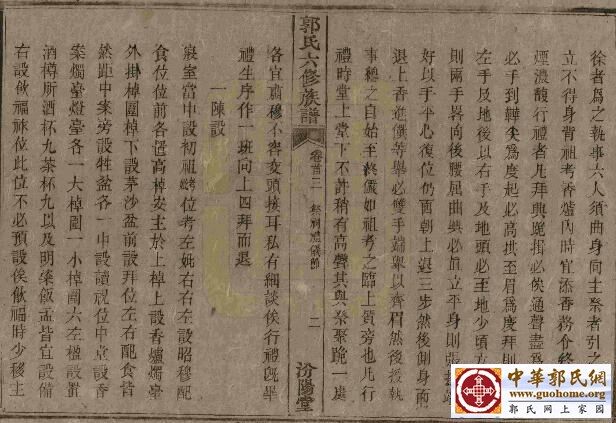 徐者為之執事六人須曲身向主祭者引之
立不得身背祖考香爐內時宜添香務令終
煙濃馥行禮者凡拜興跪揖必俟通聲盡為
必手到轉尖為度起必高拱至眉為度拜則
左手及地後以右手及地頭必至地少頃方
則兩手畧向後腰屈曲興必直立平身則張
好以手平心復位仍面朝上退三步然後側身而
退上香進饌等舉必雙手端舉以齊眉然後授執
事總之自始至終儼如祖考之臨上質旁也凡行
禮時堂上堂下不許稍有高聲其與祭聚跪一處
郭氏六修族譜
卷首二
祭祠禮儀節
二
汾陽堂
各宜肅穆不容交頭接耳私有細談俟行禮既畢
禮生序作一班向上四拜而退
一陳設
寢室當中設初祖考妣位考左妣右左設昭穆配
食位位前各置高棹安主於上棹上設香爐燭臺
外掛棹圍棹下設茅沙盆前設拜位左右配食皆
然距中案旁設牲盆各一中設讀祝位中堂設香
案燭臺燈臺各一大棹圍一小棹圍六左楹設置
酒樽所酒杯九茶杯九以及明粢飯盂皆宜設備
右設飲福祚位此位不必預設俟飲福時少移主
中華郭氏網
www.guohome.org
郭氏网上家园